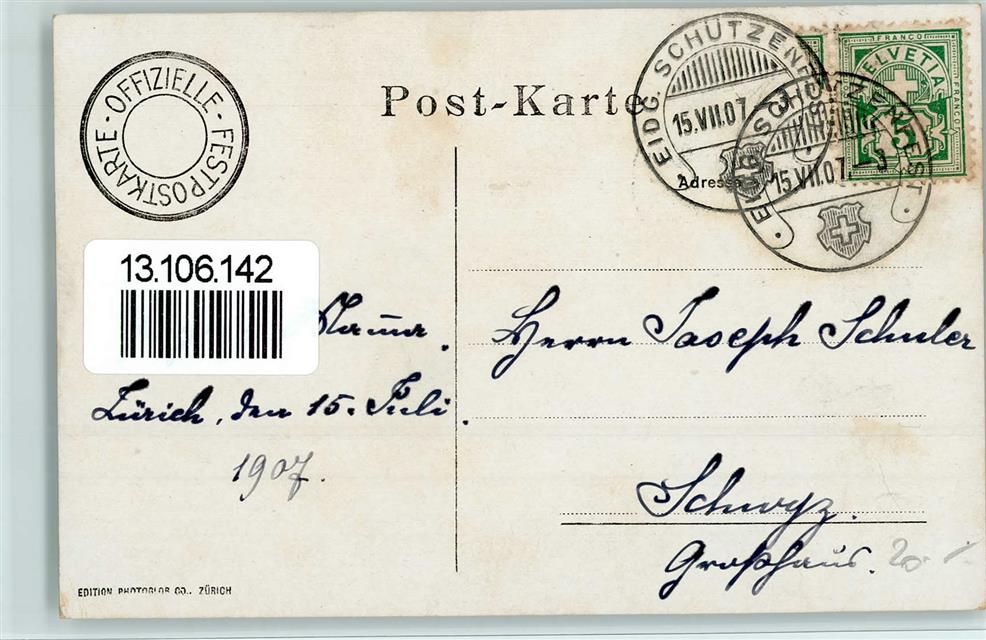 · OFFIZIELLE · FESTPOSTKARTE
Post-Karte
EIDG. SCHÜTZENFEST
15.VII.07
EIDG. SCHÜTZENFEST
15.VII.07.–3
FRANCO
HELVETIA
FRANCO
FRANCO
5
Adresse
13.106.142
Mama.
Zürich, den 15. Juli.
1907.
Herrn Joseph Schuler
Schwyz.
Großhaus.
20.-
EDITION PHOTOGLOB CO., ZÜRICH